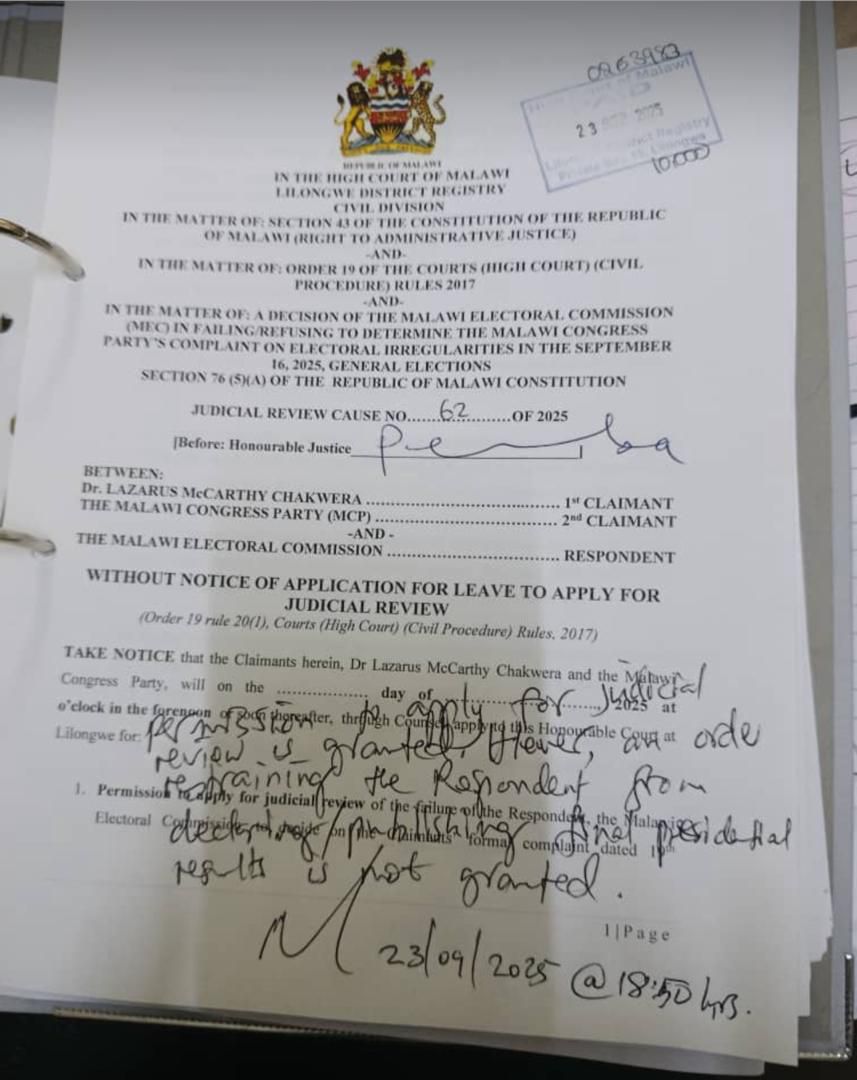 0263983
High Court of Malawi
23 2025
District Registry
Lilongwe
10,000
REPUBLIC OF MALAWI
IN THE HIGH COURT OF MALAWI
LILONGWE DISTRICT REGISTRY
CIVIL DIVISION
IN THE MATTER OF: SECTION 43 OF THE CONSTITUTION OF THE REPUBLIC
OF MALAWI (RIGHT TO ADMINISTRATIVE JUSTICE)
-AND-
IN THE MATTER OF: ORDER 19 OF THE COURTS (HIGH COURT) (CIVIL
PROCEDURE) RULES 2017
-AND-
IN THE MATTER OF: A DECISION OF THE MALAWI ELECTORAL COMMISSION
(MEC) IN FAILING/REFUSING TO DETERMINE THE MALAWI CONGRESS
PARTY'S COMPLAINT ON ELECTORAL IRREGULARITIES IN THE SEPTEMBER
16, 2025, GENERAL ELECTIONS
SECTION 76 (5)(A) OF THE REPUBLIC OF MALAWI CONSTITUTION
JUDICIAL REVIEW CAUSE NO.......62..........OF 2025
[Before: Honourable Justice Pemba]
BETWEEN:
Dr. LAZARUS McCARTHY CHAKWERA ........................................... 1st CLAIMANT
THE MALAWI CONGRESS PARTY (MCP) ........................................ 2nd CLAIMANT
-AND -
THE MALAWI ELECTORAL COMMISSION ...................................... RESPONDENT
WITHOUT NOTICE OF APPLICATION FOR LEAVE TO APPLY FOR
JUDICIAL REVIEW
(Order 19 rule 20(1), Courts (High Court) (Civil Procedure) Rules, 2017)
TAKE NOTICE that the Claimants herein, Dr Lazarus McCarthy Chakwera and the Malawi
Congress Party, will on the .................... day of .............................., 2025 at
o'clock in the forenoon or soon thereafter, through Counsel apply to this Honourable Court at
Lilongwe for:
1. Permission to apply for judicial review of the failure of the Respondent, the Malawi
Electoral Commission to decide on the claimants' formal complaint dated 19th
permission to apply for judicial
review is granted. However, an order
restraining the Respondent from
declaring/publishing final presidential
results is not granted.
23/09/2025 @ 18:50 hrs.
1 | Page